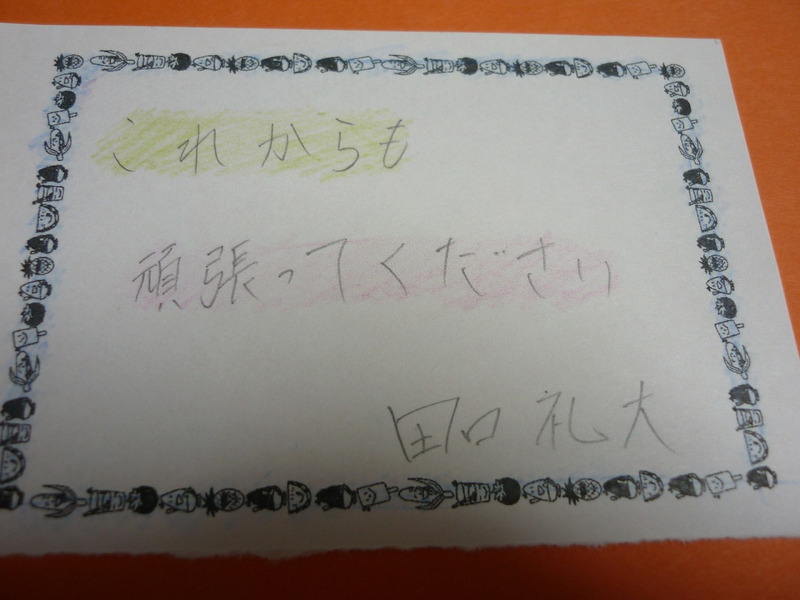 これからも
頑張ってください
田口礼大